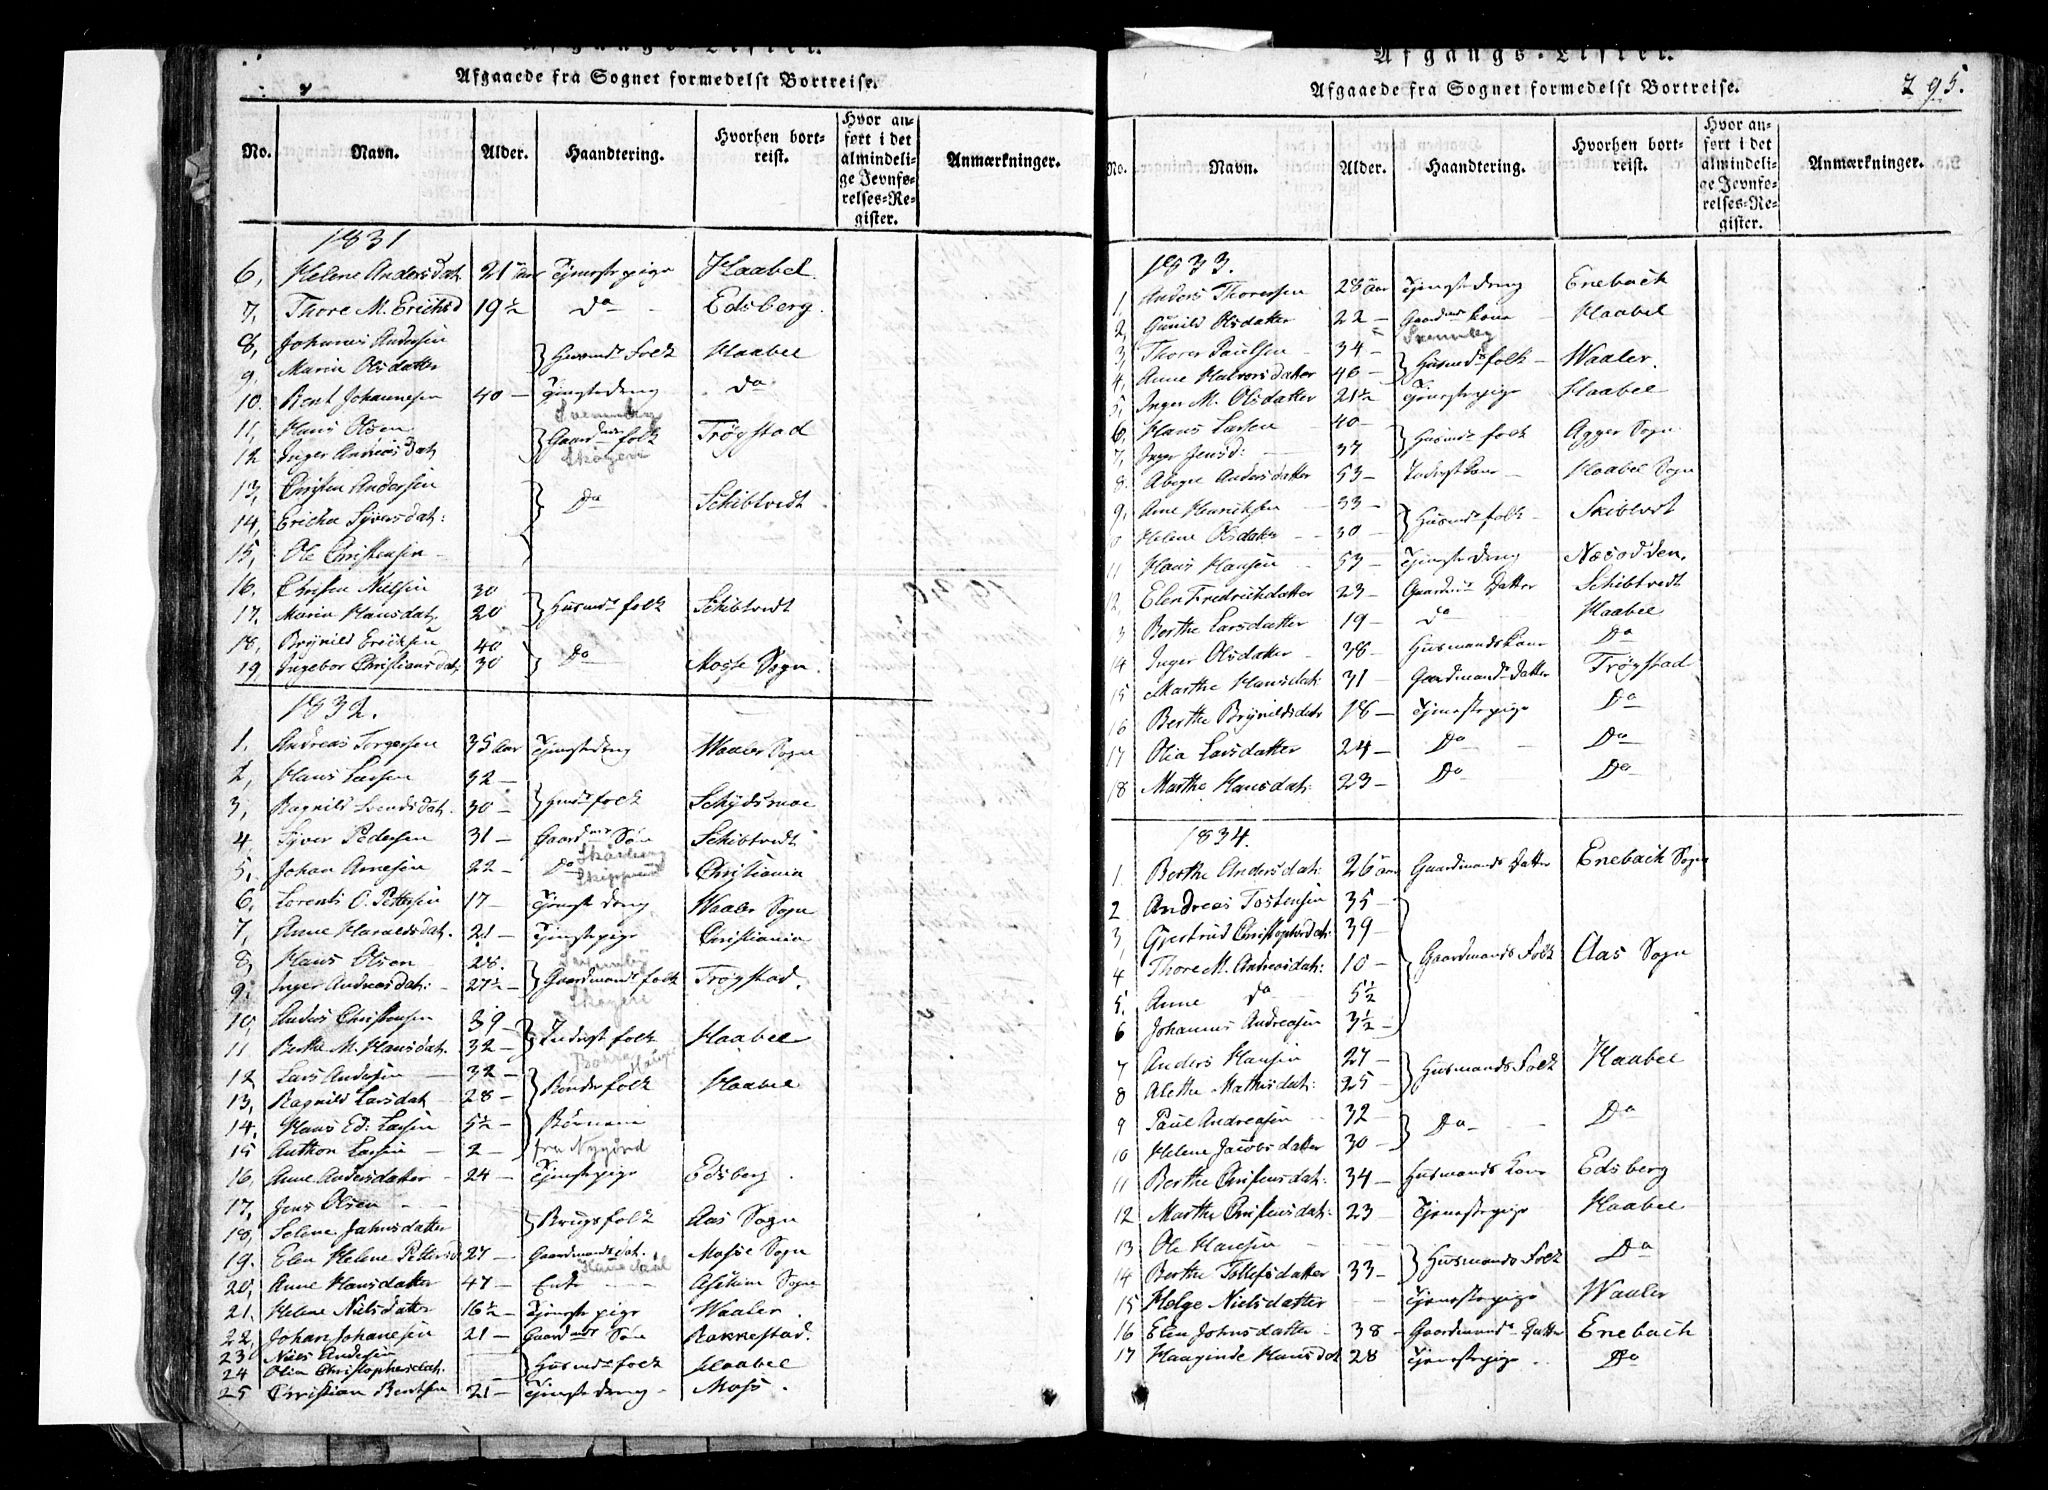 Afgangs-Lister.
Afgaaede fra Sognet formedelst Bortreise.
No. Navn. Alder. Haandtering. Hvorhen bortreist. Hvor anført i det almindelige Jevnførelses-Register. Anmærkninger.
1831
6, Helene Andersdat. 21 aar Tjenestepige Haabel
7, Thore M. Erichsd 19½ Do Edsberg.
8, Johannes Andersen
9, Maria Olsdatter } Husmds Folk Haabel
10. Bent Johannesen 40 — Tjenestedreng Do
11, Hans Olsen
12 Inger Andreasdat } Gaardmds folk Trögstad
13, Christen Andersen
14, Ericha Syversdat: } Do Schibtvedt
15, Ole Christensen
16. Christen Nielsen 30
17. Maria Hansdat. 20 } Husmds folk Schibtvedt
18, Brynild Eriksen 40
19, Ingebor Christiansdat. 30 } Do Mosse Sogn.
1832.
1. Andreas Torgersen 35 aar Tjenestedreng Waaler Sogn
2, Hans Larsen 32 —
3, Ragnild Svendsdat. 30 — } Husmds folk Schydsmoe
4. Syver Pedersen 31 — Gaardmds Søn Schibtvedt
5, Johan Arnesen 22 — Do Christiania
6, Lorents O. Pettersen 17 — Tjenestedreng Waaler Sogn
7, Anne Haraldsdat. 21 — Tjenestepige Christiania
8, Hans Olsen — 28.
9, Inger Andreasdat: 27½ — } Gaardmands folk Trögstad.
Skøgeri
10, Anders Christensen 39 —
11, Berthe M. Hansdat. 32 — } Inderst folk Haabel
12, Lars Andersen 32 —
13, Ragnild Larsdat 28 — } Bønderfolk Haabel
14, Hans Ed: Larsen 5½ — Børnene
15 Anthon Larsen — 2 — fra Nygård
16, Anne Andersdatter — 24 — Tjenestepige Edsberg
17, Jens Olsen
18, Selene Jahnsdatter } Brugsfolk Aas Sogn
19. Elen Helene Pettersd 27 — Gaardmandsdat. Mosse Sogn
20, Anne Hansdatter 47 — Enke Askim Sogn
21, Helene Nielsdatter 16½ — Tjenestepige Waaler
22, Johan Johanesen 21 — Gaardmds Søn Rakkestad.
23 Niels Andersen
24 Olia Christophersdat. } Husmds folk Haabel
25 Christian Bentsen 21 — Tjenestedreng — Moss.
Afgangs-Lister.
295.
Afgaaede fra Sognet formedelst Bortreise.
No. Navn. Alder. Haandtering. Hvorhen bortreist. Hvor anført i det almindelige Jevnførelses-Register. Anmærkninger.
1833.
1, Anders Thoresen 28 aar Tjenestedreng Enebach
2, Gunild Olsdatter 22 — Gaardmds kone Haabel
3, Thorer Paulsen 34 —
4, Anne Halvorsdatter 46 — } Husmds folk — Waaler.
5, Inger M. Olsdatter 21½ Tjenestepige Haabel
6, Hans Larsen 40 —
7, Inger Jensd: 37 } Husmds folk Agger Sogn
8. Abegel Andersdatter 53 — Inderstkone — Haabel Sogn
9, Arne Henriksen 33 —
Helene Olsdatter 30 — } Husmds folk Skibtvet
11 Hans Hansen 53 — Tjenestedreng Næsodden.
12, Elen Fredrichdatter 23 — Gaardmds Datter Schibtvedt
3 Berthe Larsdatter 19 — Do Haabel
14 Inger Olsdatter 38 — Husmandskone Do
15 Marthe Hansdat: 31 — Gaardmands Datter Trögstad
16 Berthe Brynildsdatr 18 — Tjenestepige Do
17 Olia Larsdatter 24 — Do Do
18 Marthe Hansdat: 23 — Do Do
1834.
1. Berthe Andersdat: 26 aar Gaardmands Datter Enebach Sogn
2 Andreas Tostensen 35 —
3, Gjertrud Christophersdat: 39 —
4 Thore M. Andreasdat: 10 — } Gaardmands Folk Aas Sogn
5. Anne Do 5½
6 Johannes Andreasen 3½
7 Anders Hansen 27 —
8 Alethe Mathisdat: 25 — } Husmands Folk Haabel
9 Paul Andreasen 32 —
10 Helene Jacobsdatter 30 — } Do Do
11 Berthe Christensdat: 34 — Husmands Kone Edsberg
12 Marthe Christensdat: 23 — Tjenestepige Haabel
13 Ole Hansen
14 Berthe Tollefsdatter 33 — } Husmands Folk Do
15 Helge Nielsdatter Tjenestepige Waaler
16 Elen Johnsdatter 38 — Gaardmands Datter Enebach
17 Haaginde Hansdat 28 Tjenestepige Do